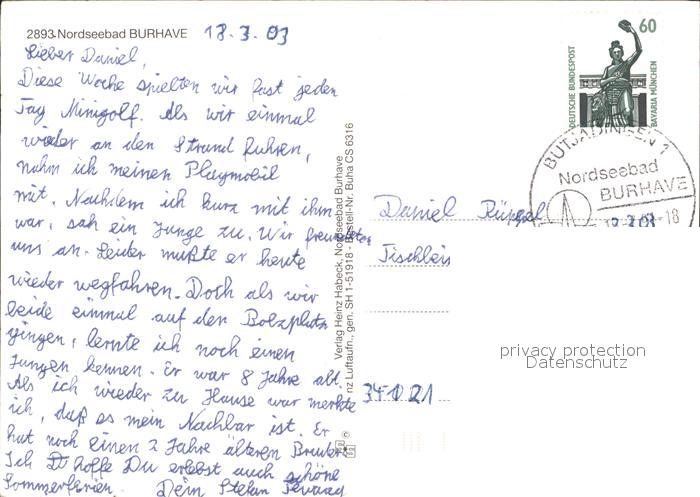 2893 Nordseebad BURHAVE
18.3.03
Lieber Daniel,
Diese Woche spielten wir fast jeden
Tag Minigolf. Als wir einmal
wieder an den Strand fuhren,
nahm ich meinen Playmobil
mit. Nachdem ich kurz mit ihm
war, sah ein Junge zu. Wir freundeten
uns an. Leider mußte er heute
wieder wegfahren. Doch als wir
beide einmal auf den Bolzplatz
gingen, lernte ich noch einen
Jungen kennen. Er war 8 Jahre alt.
Als ich wieder zu Hause war merkte
ich, daß es mein Nachbar ist. Er
hat noch einen 2 Jahre älteren Bruder.
Ich hoffe Du erlebst auch schöne
Sommerferien. Dein Stefan
Verlag Heinz Habeck, Nordseebad Burhave
nz Luftaufn., gen. SH 1-51918 - Bestell-Nr.: Buha CS 6316
60
DEUTSCHE BUNDESPOST
BAVARIA MÜNCHEN
BUTJADINGEN 1
Nordseebad
BURHAVE
-18
Daniel
Fischlein
privacy protection
Datenschutz